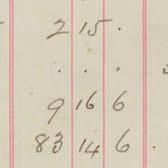 2 15 .
. . .
9 16 6
83 14 6